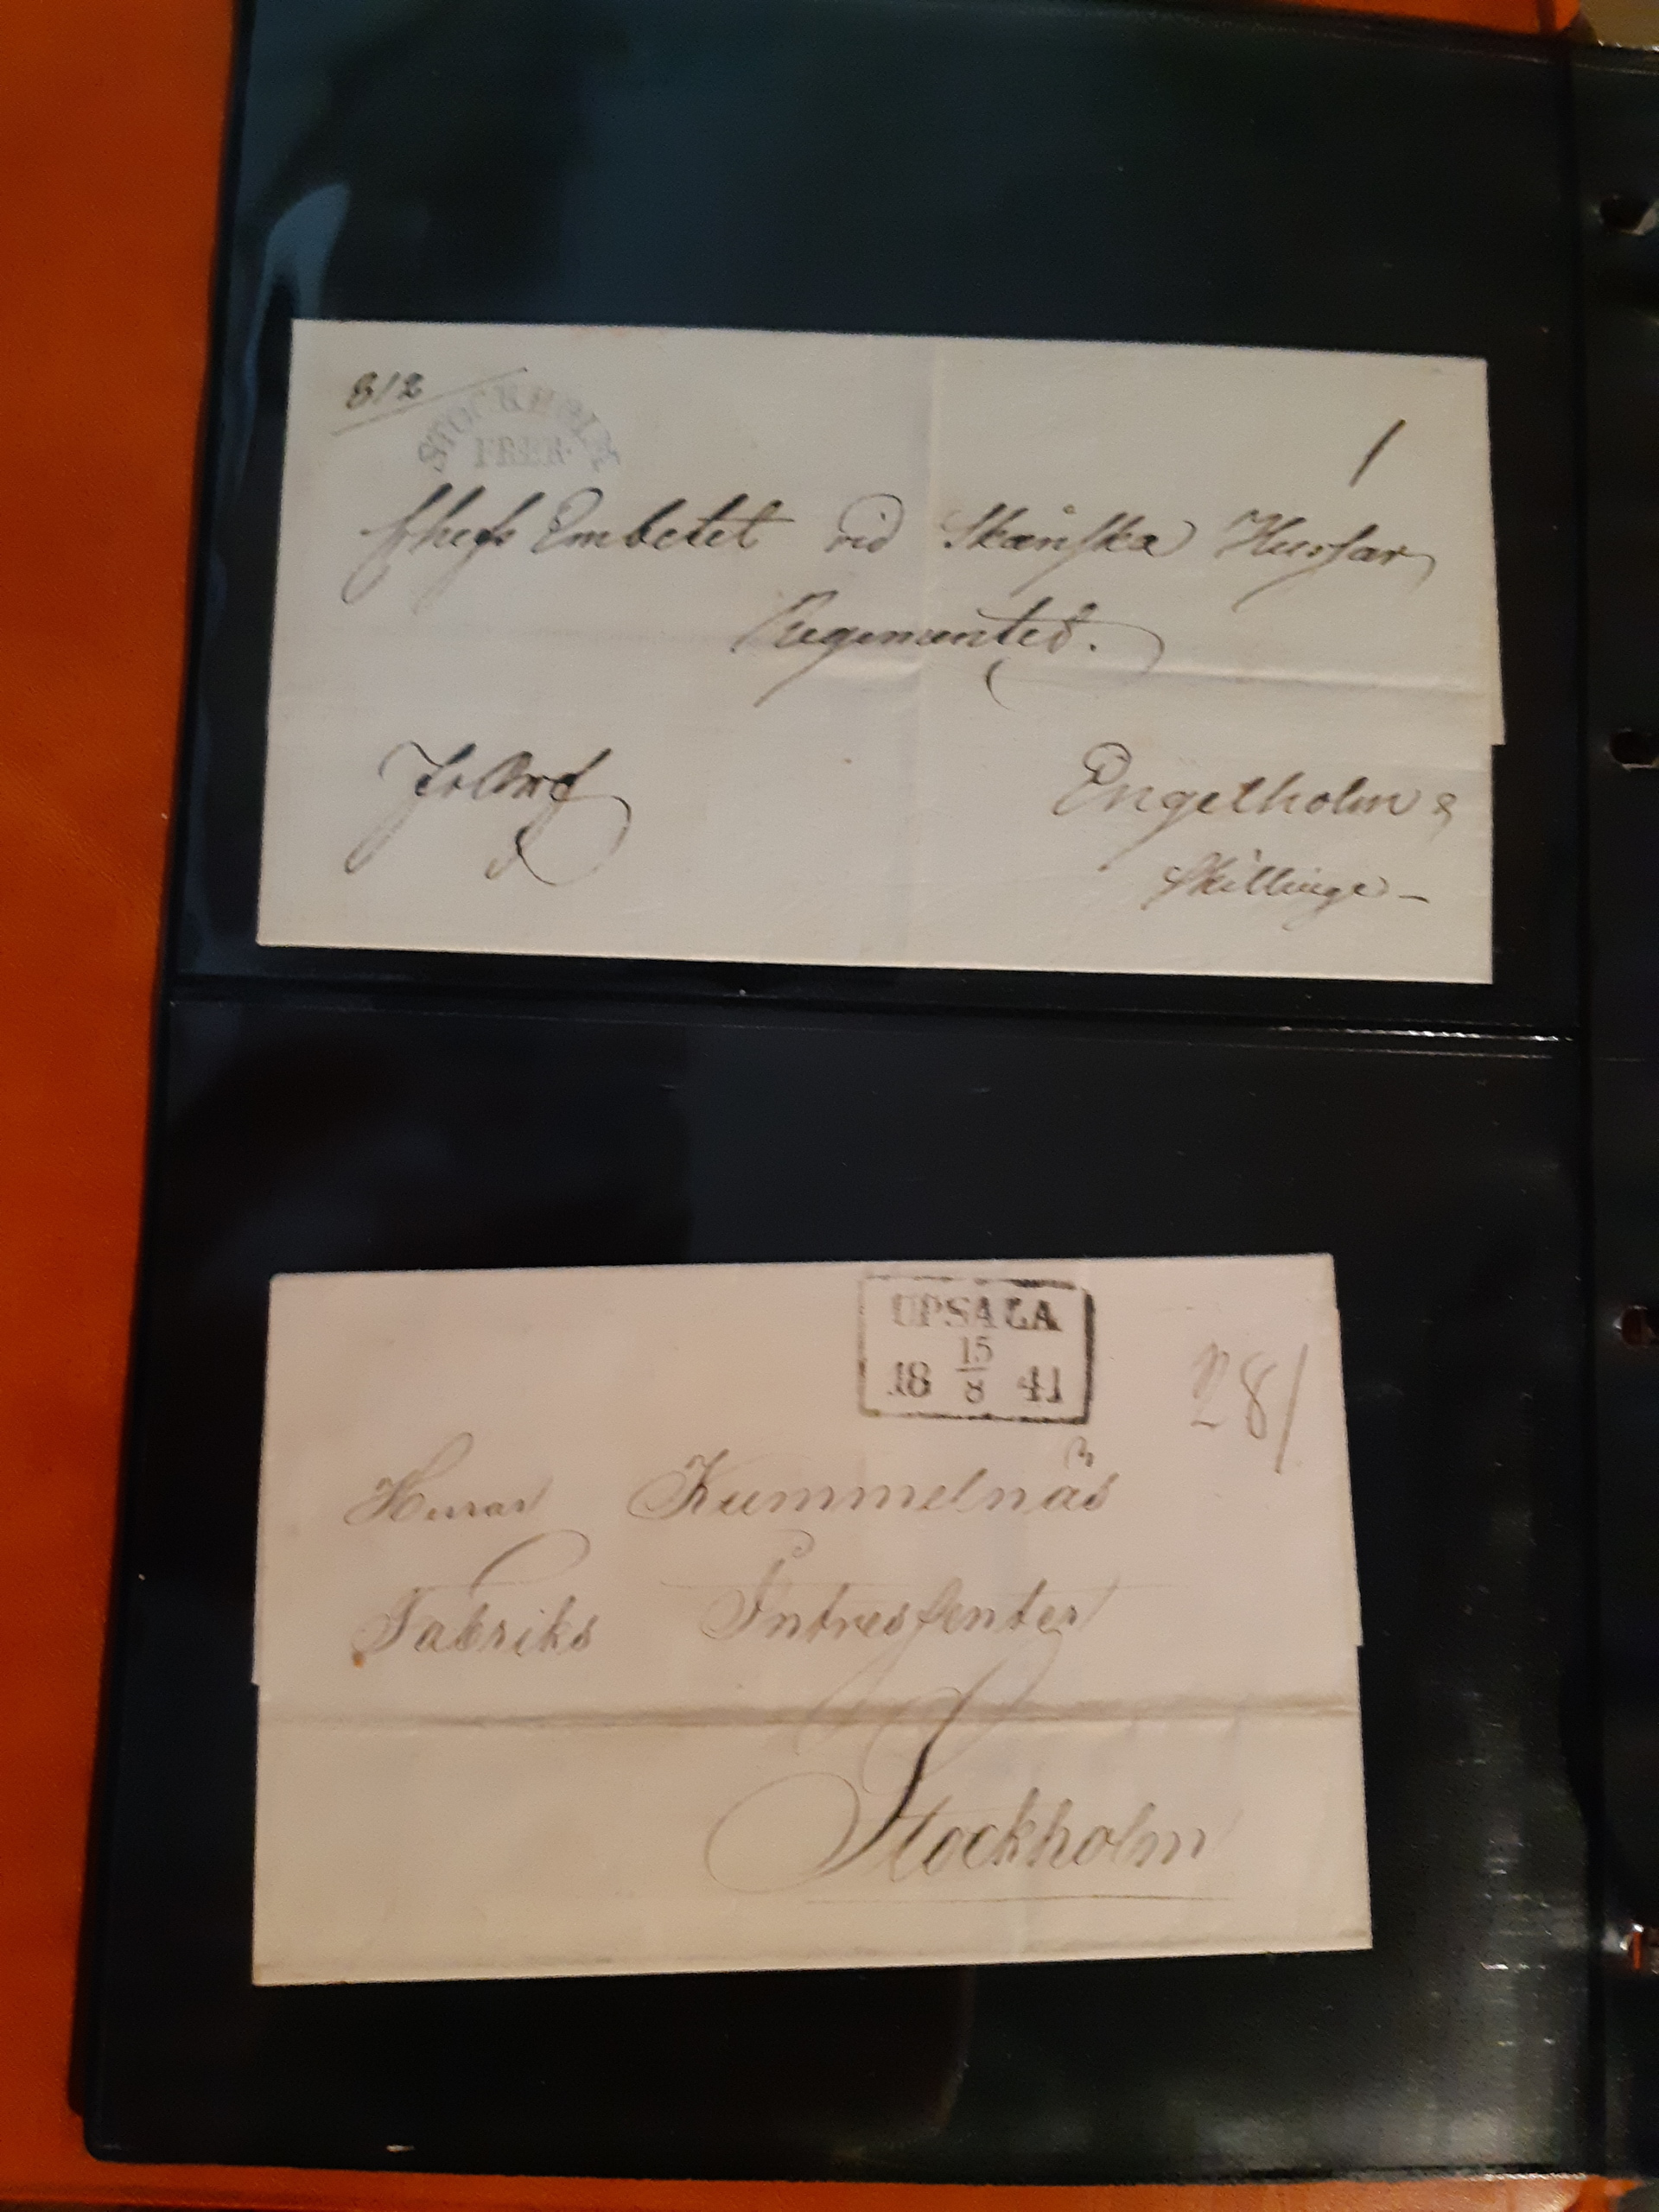 812
STOCKHOLM
FRBR.
Chefs Embetet vid Skånska Hussar
Regementet.
Engelholm &
Skillinge -
UPSALA
15
18 8 41
28/
Herrar Kummelnäs
Fabriks Intressenter
Stockholm